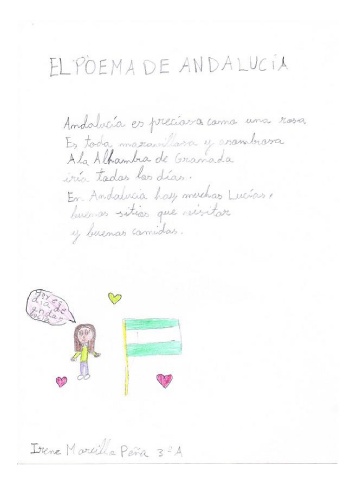 EL POEMA DE ANDALUCIA
Andalucía es preciosa como una rosa
Es toda maravillosa y asombrosa
A la Alhambra de Granada
iría todos los días.
En Andalucía hay muchas Lucías,
buenos sitios que visitar
y buenas comidas.
Irene Morcillo Peña 3º A